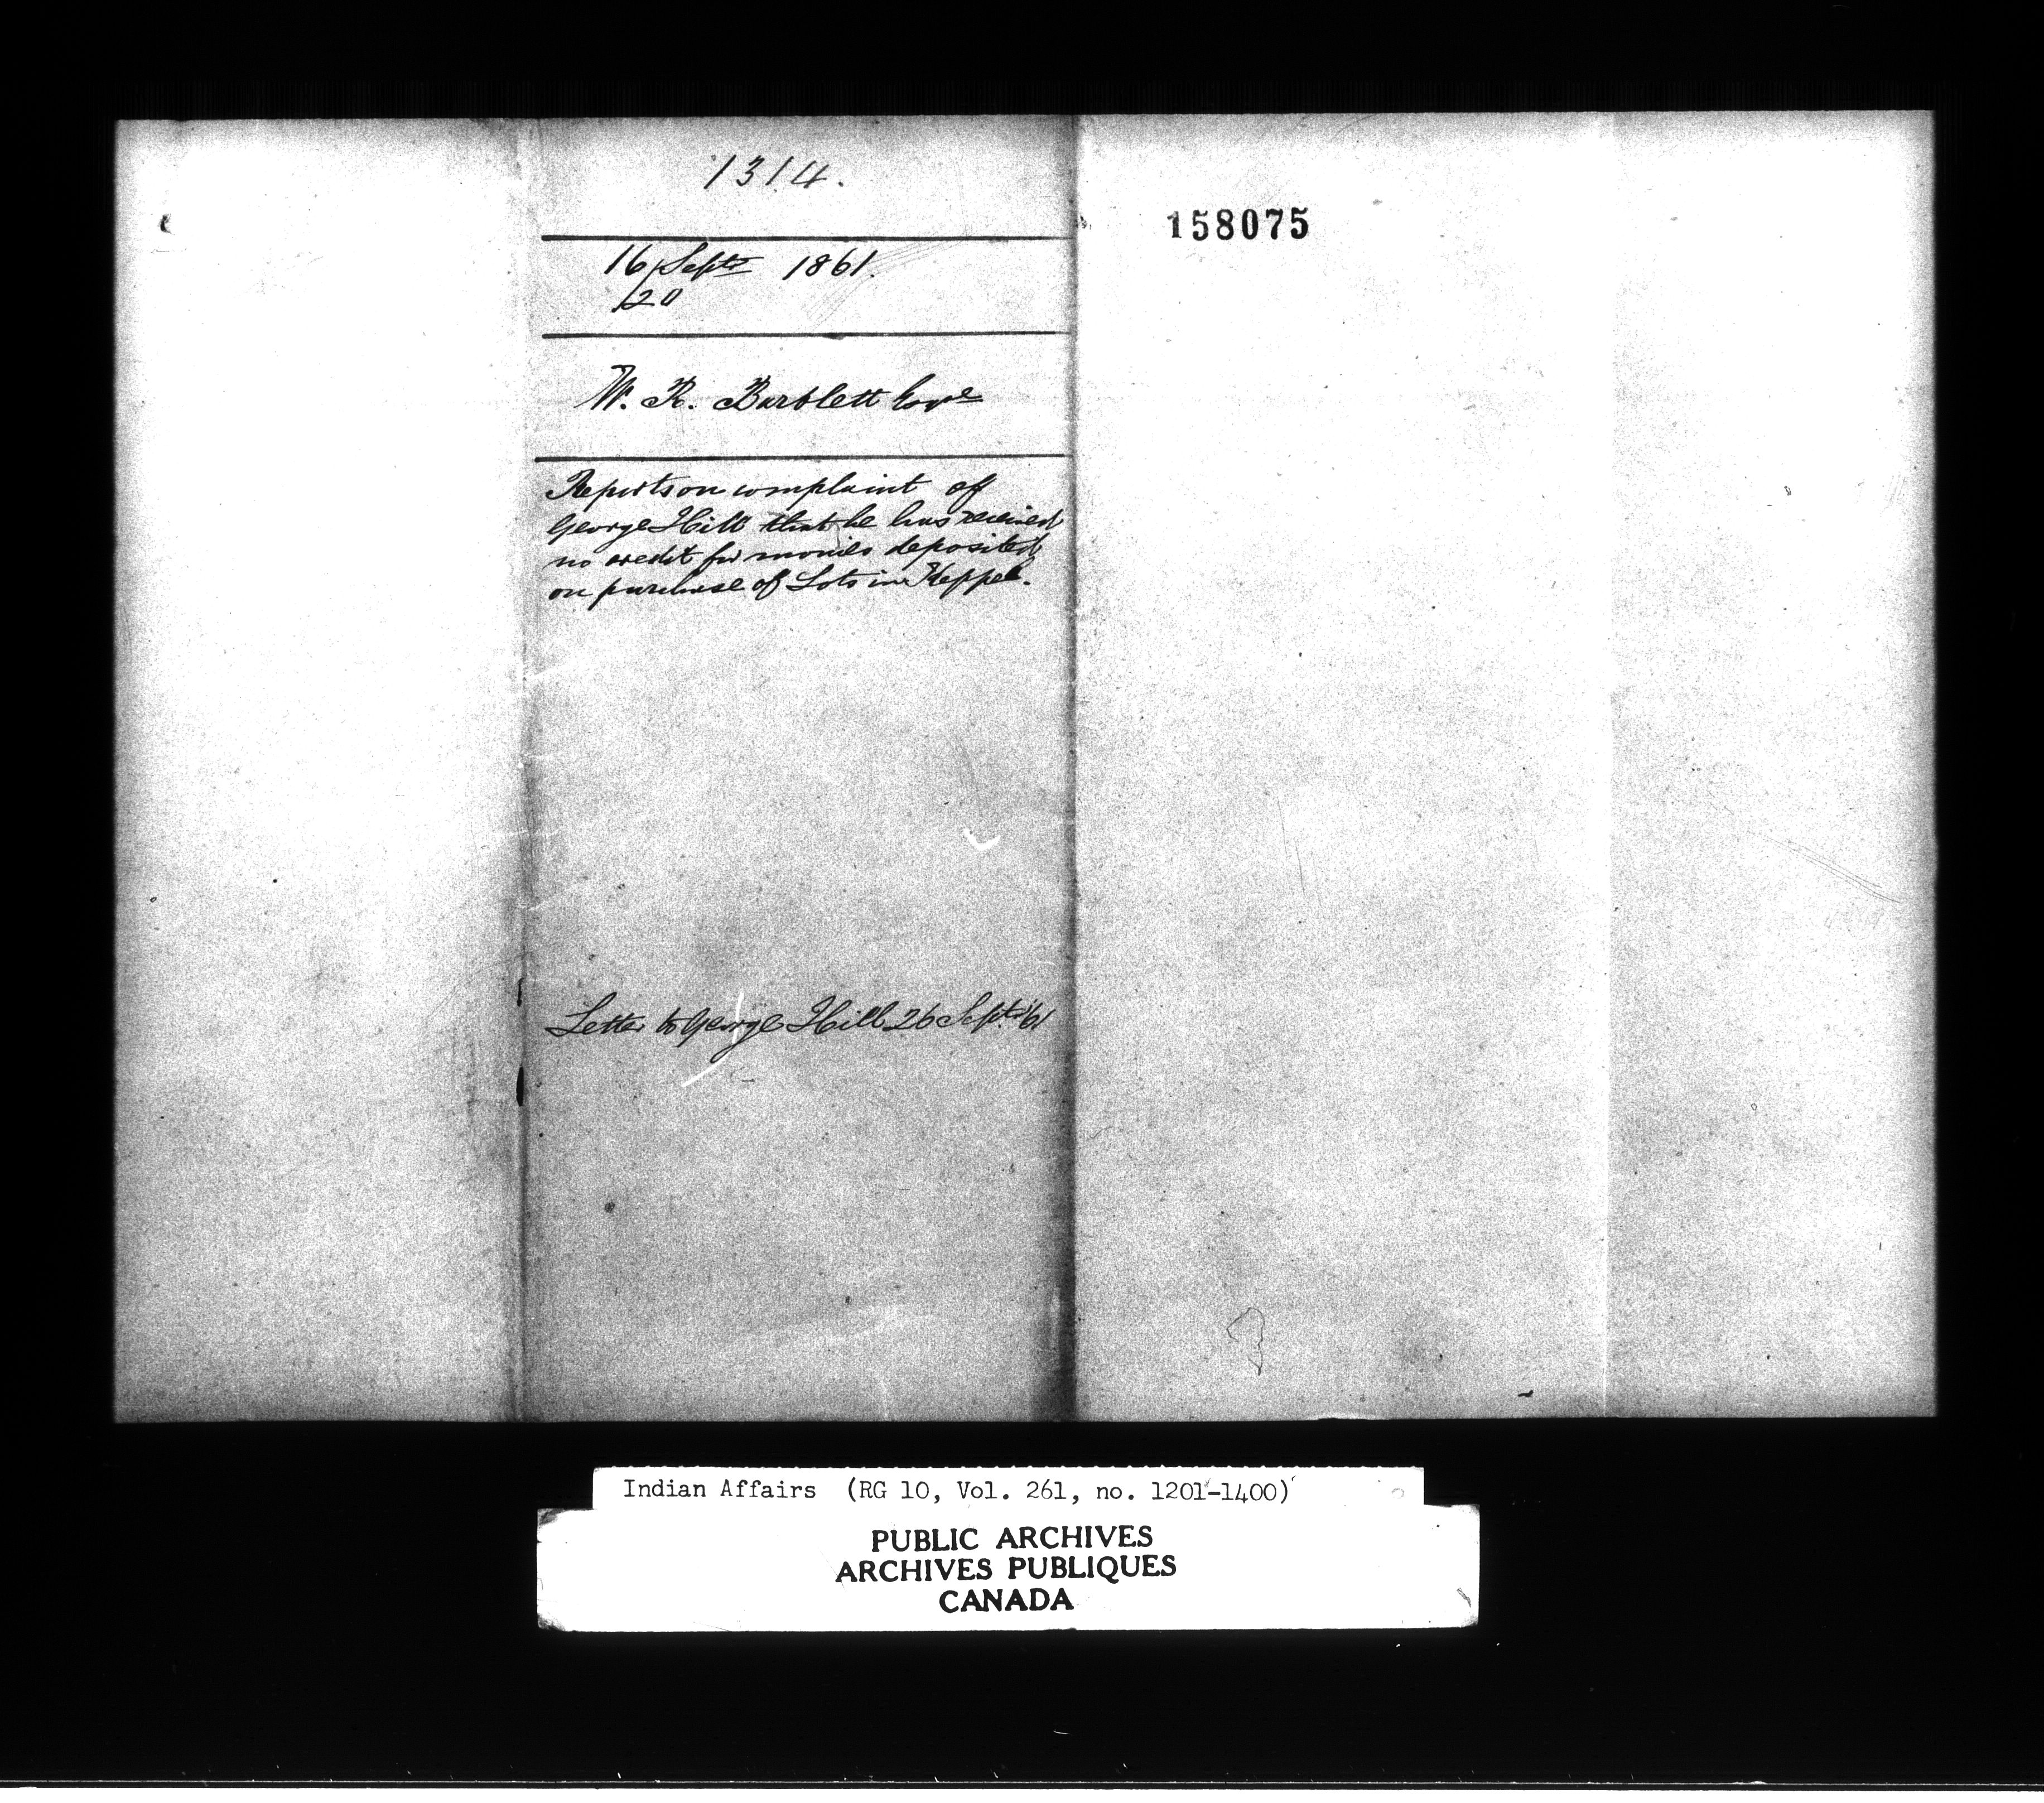 1314.
158075
16 Septr 1861.
/20
W. R. Bartlett Esqre
Reports on complaint of
George Hill that he has received
no credit for monies deposited
on purchase of Lots in Keppel.
Letter to George Hill 26 Septr /61
Indian Affairs (RG 10, Vol. 261, no. 1201-1400)
PUBLIC ARCHIVES
ARCHIVES PUBLIQUES
CANADA